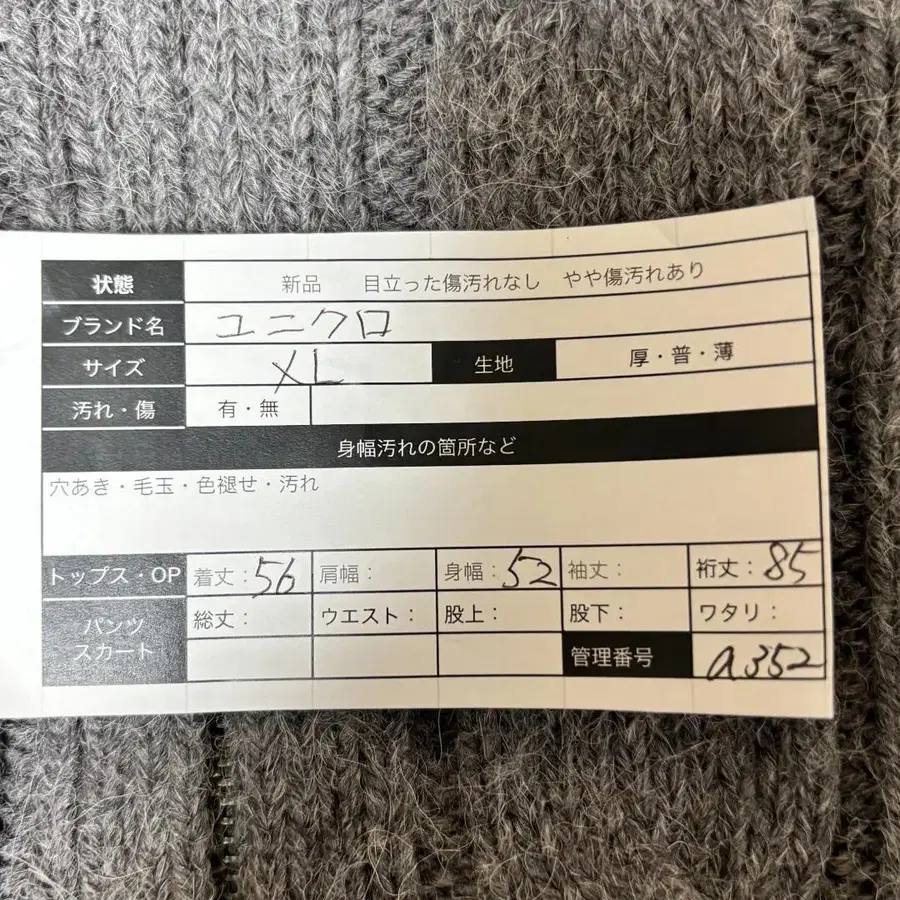 状態 新品 目立った傷汚れなし やや傷汚れあり
ブランド名 ユニクロ
サイズ XL 生地 厚・普・薄
汚れ・傷 有・無
身幅汚れの箇所など
穴あき・毛玉・色褪せ・汚れ
トップス・OP 着丈：56 肩幅： 身幅：52 袖丈： 裄丈：85
パンツ 総丈： ウエスト： 股上： 股下： ワタリ：
スカート 管理番号 a352